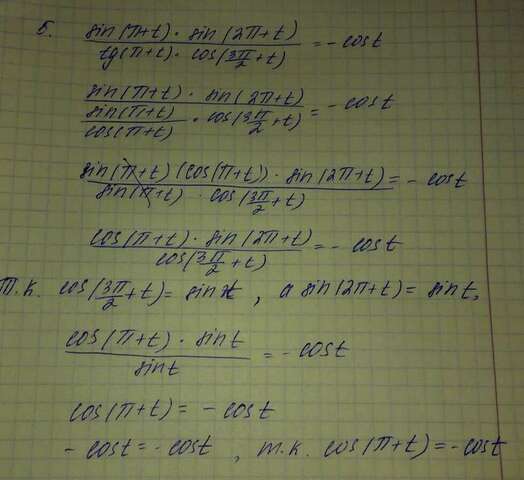 5. sin(π+t)·sin(2π+t) / tg(π+t)·cos(3π/2+t) = -cost
sin(π+t)·sin(2π+t) / sin(π+t)/cos(π+t)·cos(3π/2+t) = -cost
sin(π+t)(cos(π+t))·sin(2π+t) / sin(π+t)·cos(3π/2+t) = -cost
cos(π+t)·sin(2π+t) / cos(3π/2+t) = -cost
т.к. cos(3π/2+t) = sin t, а sin(2π+t) = sint,
cos(π+t)·sint / sint = -cost
cos(π+t) = -cost
-cost = -cost, т.к. cos(π+t) = -cost